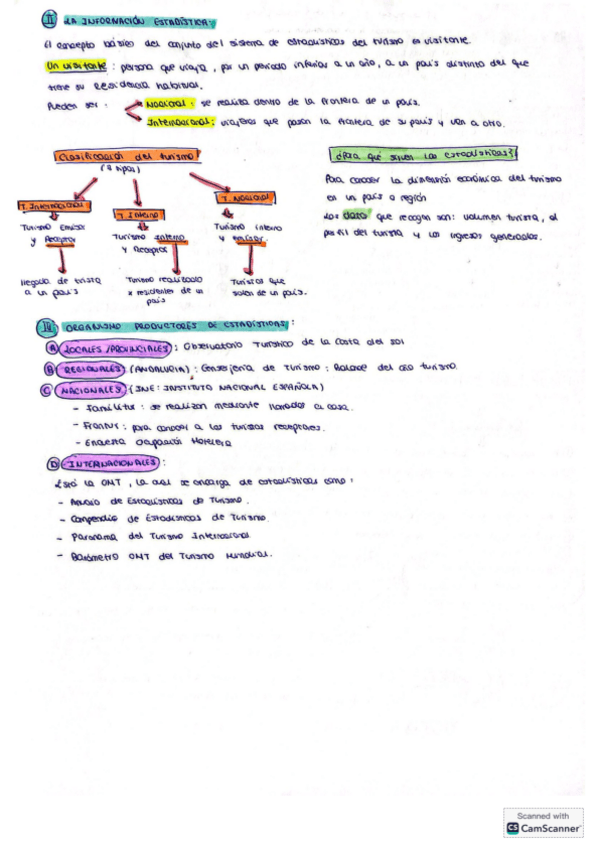 II LA INFORMACIÓN ESTADÍSTICA:
El concepto básico del conjunto del sistema de estadísticas del turismo es visitante.
Un visitante: persona que viaja, por un periodo inferior a un año, a un país distinto del que
tiene su residencia habitual.
Pueden ser:
Nacional: se realiza dentro de la frontera de un país.
Internacional: viajeros que pasan la frontera de su país y van a otro.
Clasificación del turismo
(3 tipos)
T. Internacional
Turismo Emisor
y Receptor
llegada de turista
a un país
T. Interno
Turismo interno
y Receptor
Turismo realizado
x residentes de un
país
T. Nacional
Turismo interno
y emisor.
Turistas que
salen de un país.
¿Para qué sirven las estadísticas?
Para conocer la dimensión económica del turismo
en un país o región
Los datos que recogen son: volumen turista, el
perfil del turista y los ingresos generados.
ORGANISMO PRODUCTORES DE ESTADÍSTICAS:
A LOCALES/PROVINCIALES: Observatorio Turístico de la Costa del Sol
B REGIONALES: (ANDALUCIA): Consejería de Turismo: Balance del año turismo.
C NACIONALES (INE: INSTITUTO NACIONAL ESPAÑOLA)
- Familitur: se realizan mediante llamadas a casa.
- Frontur: para conocer a los turistas receptores.
- Encuesta Ocupación Hotelera
D INTERNACIONALES:
Está la OMT, la cual se encarga de estadísticas como:
- Anuario de Estadísticas de Turismo.
- Compendio de Estadísticas de Turismo.
- Panorama del Turismo Internacional
- Barómetro OMT del Turismo Mundial.
Scanned with
CS CamScanner